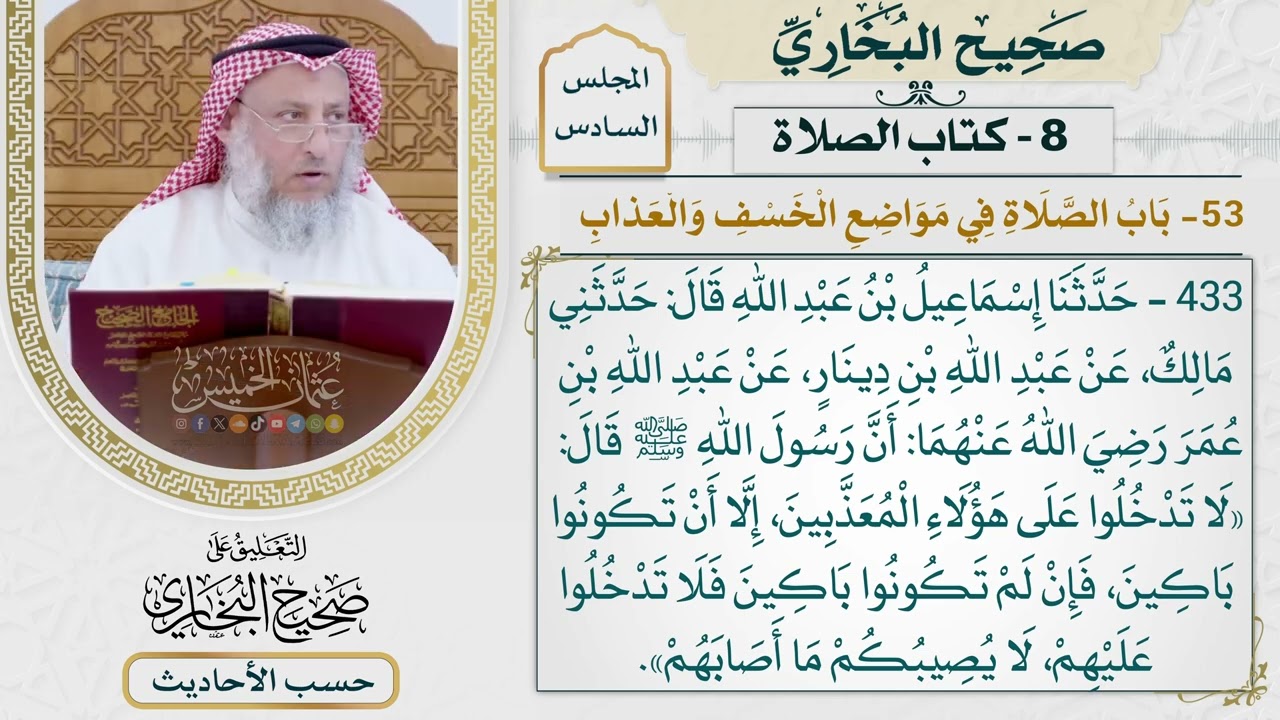 صَحِيح البُخَارِيِّ
المجلس
السادس
8 - كتاب الصلاة
53- بَابُ الصَّلَاةِ فِي مَوَاضِعِ الْخَسْفِ وَالْعَذابِ
433 - حَدَّثَنَا إِسْمَاعِيلُ بْنُ عَبْدِ اللهِ قَالَ: حَدَّثَنِي
مَالِكٌ، عَنْ عَبْدِ اللهِ بْنِ دِينَارٍ، عَنْ عَبْدِ اللهِ بْنِ
عُمَرَ رَضِيَ اللهُ عَنْهُمَا: أَنَّ رَسُولَ اللهِ ﷺ قَالَ:
«لَا تَدْخُلُوا عَلَى هَؤُلَاءِ الْمُعَذَّبِينَ، إِلَّا أَنْ تَكُونُوا
بَاكِينَ، فَإِنْ لَمْ تَكُونُوا بَاكِينَ فَلَا تَدْخُلُوا
عَلَيْهِمْ، لَا يُصِيبُكُمْ مَا أَصَابَهُمْ».
الجامع الصحيح
عُثمان الخميس
التَّعْلِيقُ عَلَى
صَحِيح البُخَارِي
حسب الأحاديث